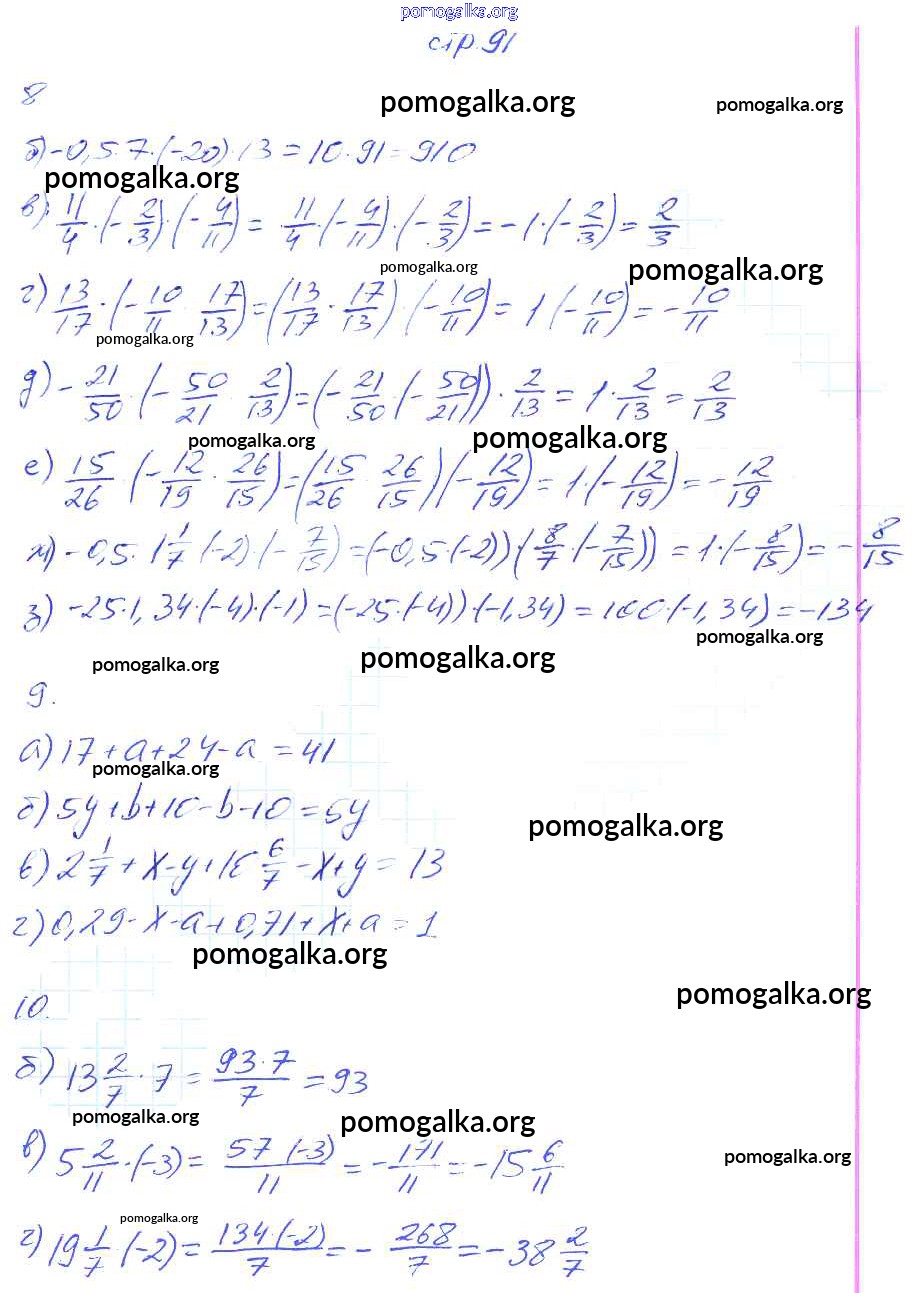 pomogalka.org
стр. 91
8
pomogalka.org pomogalka.org
б) -0,5·7·(-20)·13 = 10·91 = 910
pomogalka.org
в) 11/4·(-2/3)·(-4/11) = 11/4·(-4/11)·(-2/3) = -1·(-2/3) = 2/3
pomogalka.org pomogalka.org
г) 13/17·(-10/11 · 17/13) = (13/17·17/13)·(-10/11) = 1(-10/11) = -10/11
pomogalka.org
д) -21/50·(-50/21 · 2/13) = (-21/50·(-50/21))·2/13 = 1·2/13 = 2/13
pomogalka.org pomogalka.org
е) 15/26·(-12/19·26/15) = (15/26 · 26/15)(-12/19) = 1·(-12/19) = -12/19
ж) -0,5·1 1/7·(-2)·(-7/15) = (-0,5·(-2))·(8/7·(-7/15)) = 1·(-8/15) = -8/15
з) -25·1,34·(-4)·(-1) = (-25·(-4))·(-1,34) = 100·(-1,34) = -134
pomogalka.org
pomogalka.org pomogalka.org
9.
а) 17+a+24-a = 41
pomogalka.org
б) 5y+b+10-b-10 = 5y
pomogalka.org
в) 2 1/7+x-y+10 6/7-x+y = 13
г) 0,29-x-a+0,71+x+a = 1
pomogalka.org
pomogalka.org
10.
б) 13 2/7·7 = 93·7/7 = 93
pomogalka.org pomogalka.org
в) 5 2/11·(-3) = 57·(-3)/11 = -171/11 = -15 6/11
pomogalka.org
pomogalka.org
г) 19 1/7·(-2) = 134·(-2)/7 = -268/7 = -38 2/7